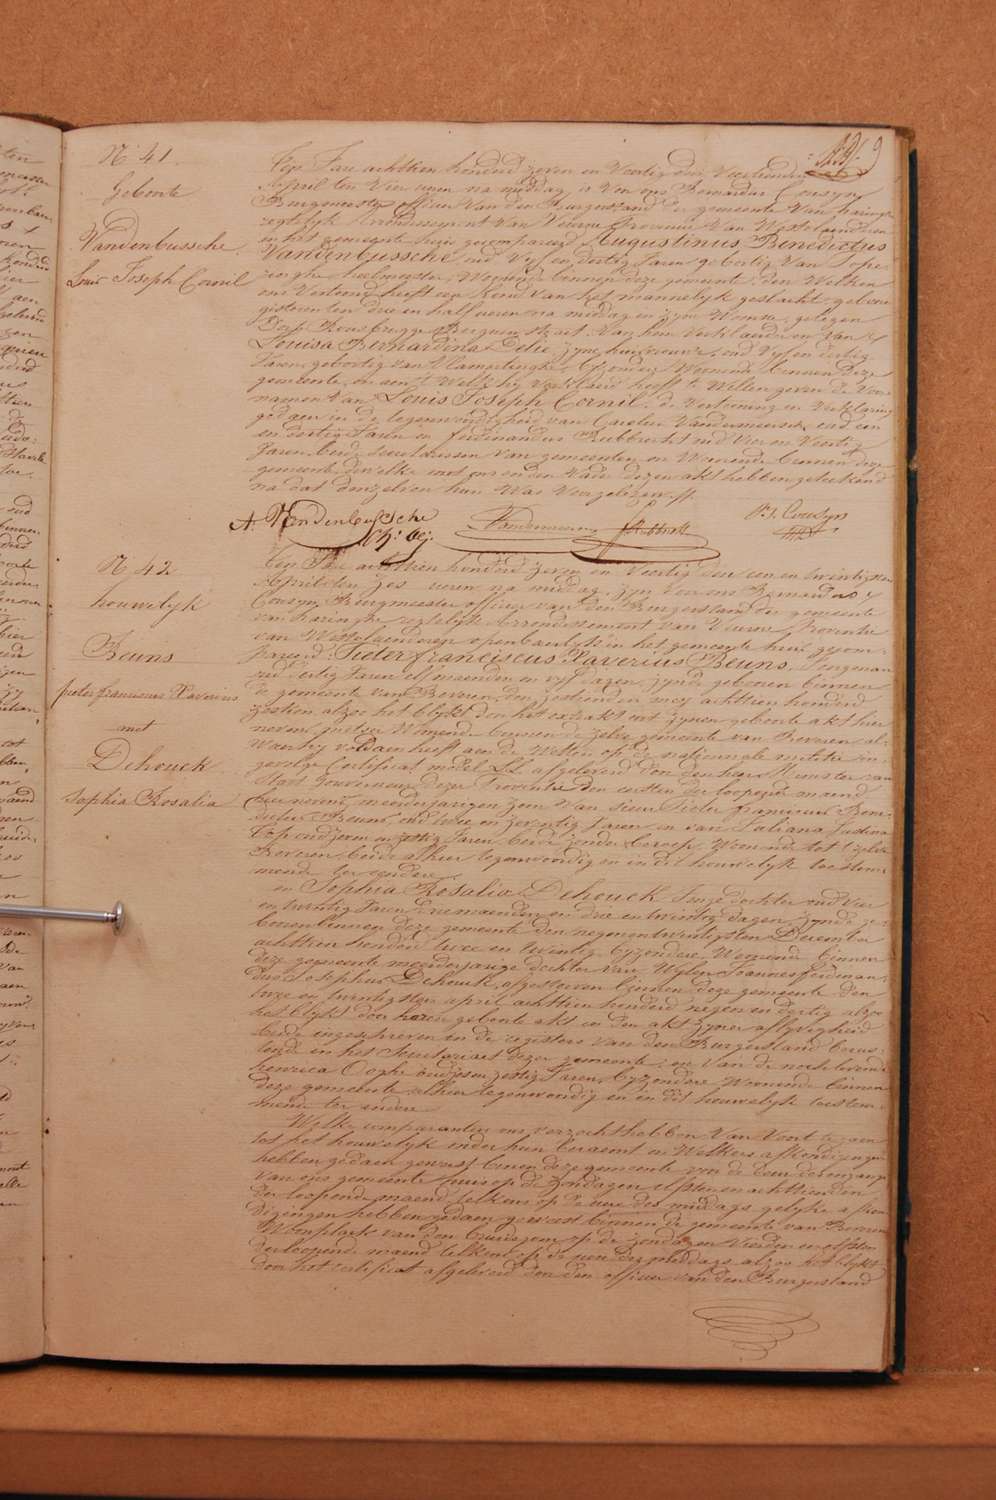 N 41
Geboorte
Vandenbussche
Louis Joseph Cornil
Op Jare achttien honderd zeven en veertig den
April ten vier uren na middag is voor ons Bernardus Cousyn
Burgmeester officier van den Burgerstand der gemeente van haringhe
regtelijk Arrondissement van Veurne Provincie van Westvlaenderen
in het gemeente huis gecompareerd Augustinus Benedictus
Vandenbussche oud vyf en dertig Jaren gebortig van
heelmeester, Woonende binnen deze gemeente, den welken
ons vertoond heeft een kind van het mannelyk geslacht, geboren
gisteren ten drie en half uren na middag in zyne Wooning, gelegen
Dorp Rousbrugge straet, van hem verklaerder en van
Louisa Bernardina Delie zyne huisvrouwe, oud vyf en dertig
Jaren gebortig van Vlamertinghe, Byzondere Woonende binnen deze
gemeente, en aen 't welk hy verklaerd heeft te willen geven de voor-
namen van Louis Joseph Cornil. de vertooning en verklaring
gedaen in de tegenwoordigheid van Carolus Vandermeersch, oud een
en dertig Jaren en ferdinandus Rubbrecht oud vier en veertig
Jaren, beide van gemeenten en Woonende binnen deze
gemeente, dewelke met ons en den Vader dezen akt hebben geteekend
na dat denzelven hun was voorgelezen.
A Vandenbussche
Vandermeersch
Rubbrecht
B. J. Cousyn
N 42
houwelyk
Beuns
pieter franciscus Xaverius
met
Dehouck
Sophia Rosalia
Op Jare achttien honderd zeven en veertig den een en twintigsten
April ten zes uren na middag, zyn voor ons Bernardus
Cousyn Burgmeester officier van den Burgerstand der gemeente
van haringhe regtelijk Arrondissement van Veurne Provintie
van Westvlaenderen openbaerlyk in het gemeente huis gecom-
pareerd Pieter franciscus Xaverius Beuns, Jongman
oud dertig Jaren elf maenden en vyf dagen, zynde geboren binnen
de gemeente van Beveren, den zestienden mey achttien honderd
zestien, alzoo het blykt door het extrakt uit zynen geboorte akt hier
nevens gevoegd Woonende binnen de zelve gemeente van Beveren al-
waer hy voldaen heeft aen de Wetten op de nationale militie in-
gevolge Certificat model LL afgeleverd door den heer Minister van
Staet Gouverneur dezer Provintie den eersten der loopende maend
hier nevens, meerderjarigen zoon van sieur Pieter franciscus Bene-
dictus Beuns, oud twee en zeventig Jaren en van Juliana Justina
oud zeven en zestig Jaren, beide zonder beroep, Woonende tot gezeide
Beveren, beide alhier tegenwoordig en in dit houwelyk toestem-
mende ter eendere
en Sophia Rosalia Dehouck Jonge dochter oud vier
en twintig Jaren drie maenden en drie en twintig dagen, zynde ge-
boren binnen deze gemeente den negenentwintigsten December
achttien honderd twee en twintig byzondere, Woonende binnen
deze gemeente meerderjarige dochter van Wylen Joannes ferdinan-
dus Josephus Dehouck, afgestorven binnen deze gemeente den
twee en twintigsten april achttien honderd negen en dertig alzoo
het blykt door haren geboorte akt en den akt zyner aflyvigheid
beide ingeschreven in de registers van den Burgerstand berus-
tende in het Secretariaet dezer gemeente, en van de noch levende
henrica Cophe oud zes en zestig Jaren, byzondere Woonende binnen
deze gemeente alhier tegenwoordig en in dit houwelyk toestem-
mende ter andere
Welke comparanten ons verzocht hebben van voort te gaen
tot het houwelyk onder hun beraemt en welkers afkondigingen
hebben gedaen geweest binnen deze gemeente voor de deur der ingang
van ons gemeente huis op de Zondagen elfsten en achttienden
der loopende maend, telkens op de uere des middags gelyke afkon-
digingen hebben gedaen geweest binnen de gemeente van Beveren
Woonplaets van den bruidegom op de zondagen vierden en elfsten
der loopende maend telkens op de uere des middags alzoo het blykt
door het certificat afgeleverd door den officier van den Burgerstand